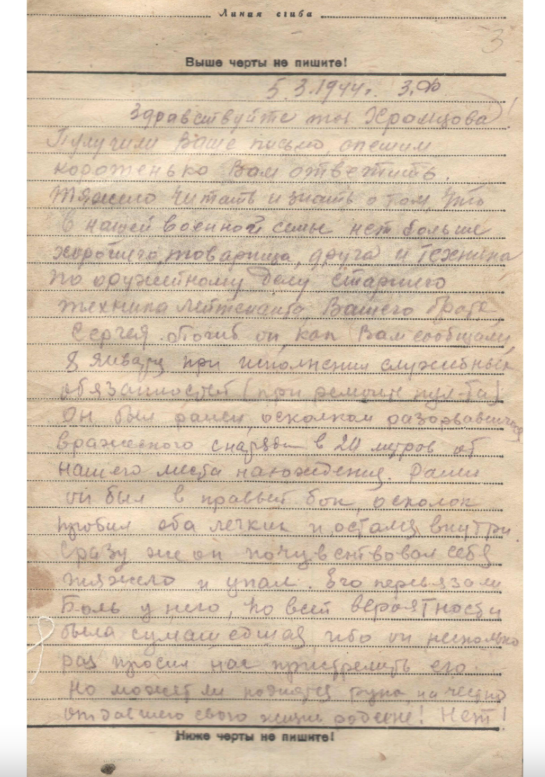 Линия сгиба
3
Выше черты не пишите!
5.3.1944г. З.Ф
Здравствуйте тов Храмцова!
Получили Ваше письмо, спешим
коротенько Вам ответить.
Тяжело читать и знать о том, что
в нашей военной семье нет больше
хорошего товарища, друга и техника
по оружейному делу старшего
техника лейтенанта, Вашего брата
Сергея. Погиб он, как Вам сообщали,
8 января при исполнении служебных
обязанностей (при ремонте пул-та)
Он был ранен осколком разорвавшегося
вражеского снаряда в 20 метров от
нашего места нахождения. Ранен
он был в правый бок, осколок
пробил оба легких и остался внутри.
Сразу же он почувствовал себя
тяжело и упал. Его перевязали
Боль у него, по всей вероятности
была сумашедшая, ибо он несколько
раз просил нас пристрелить его.
Но может ли поднятся рука, на честно
отдавшего свою жизнь родине! Нет!
Ниже черты не пишите!